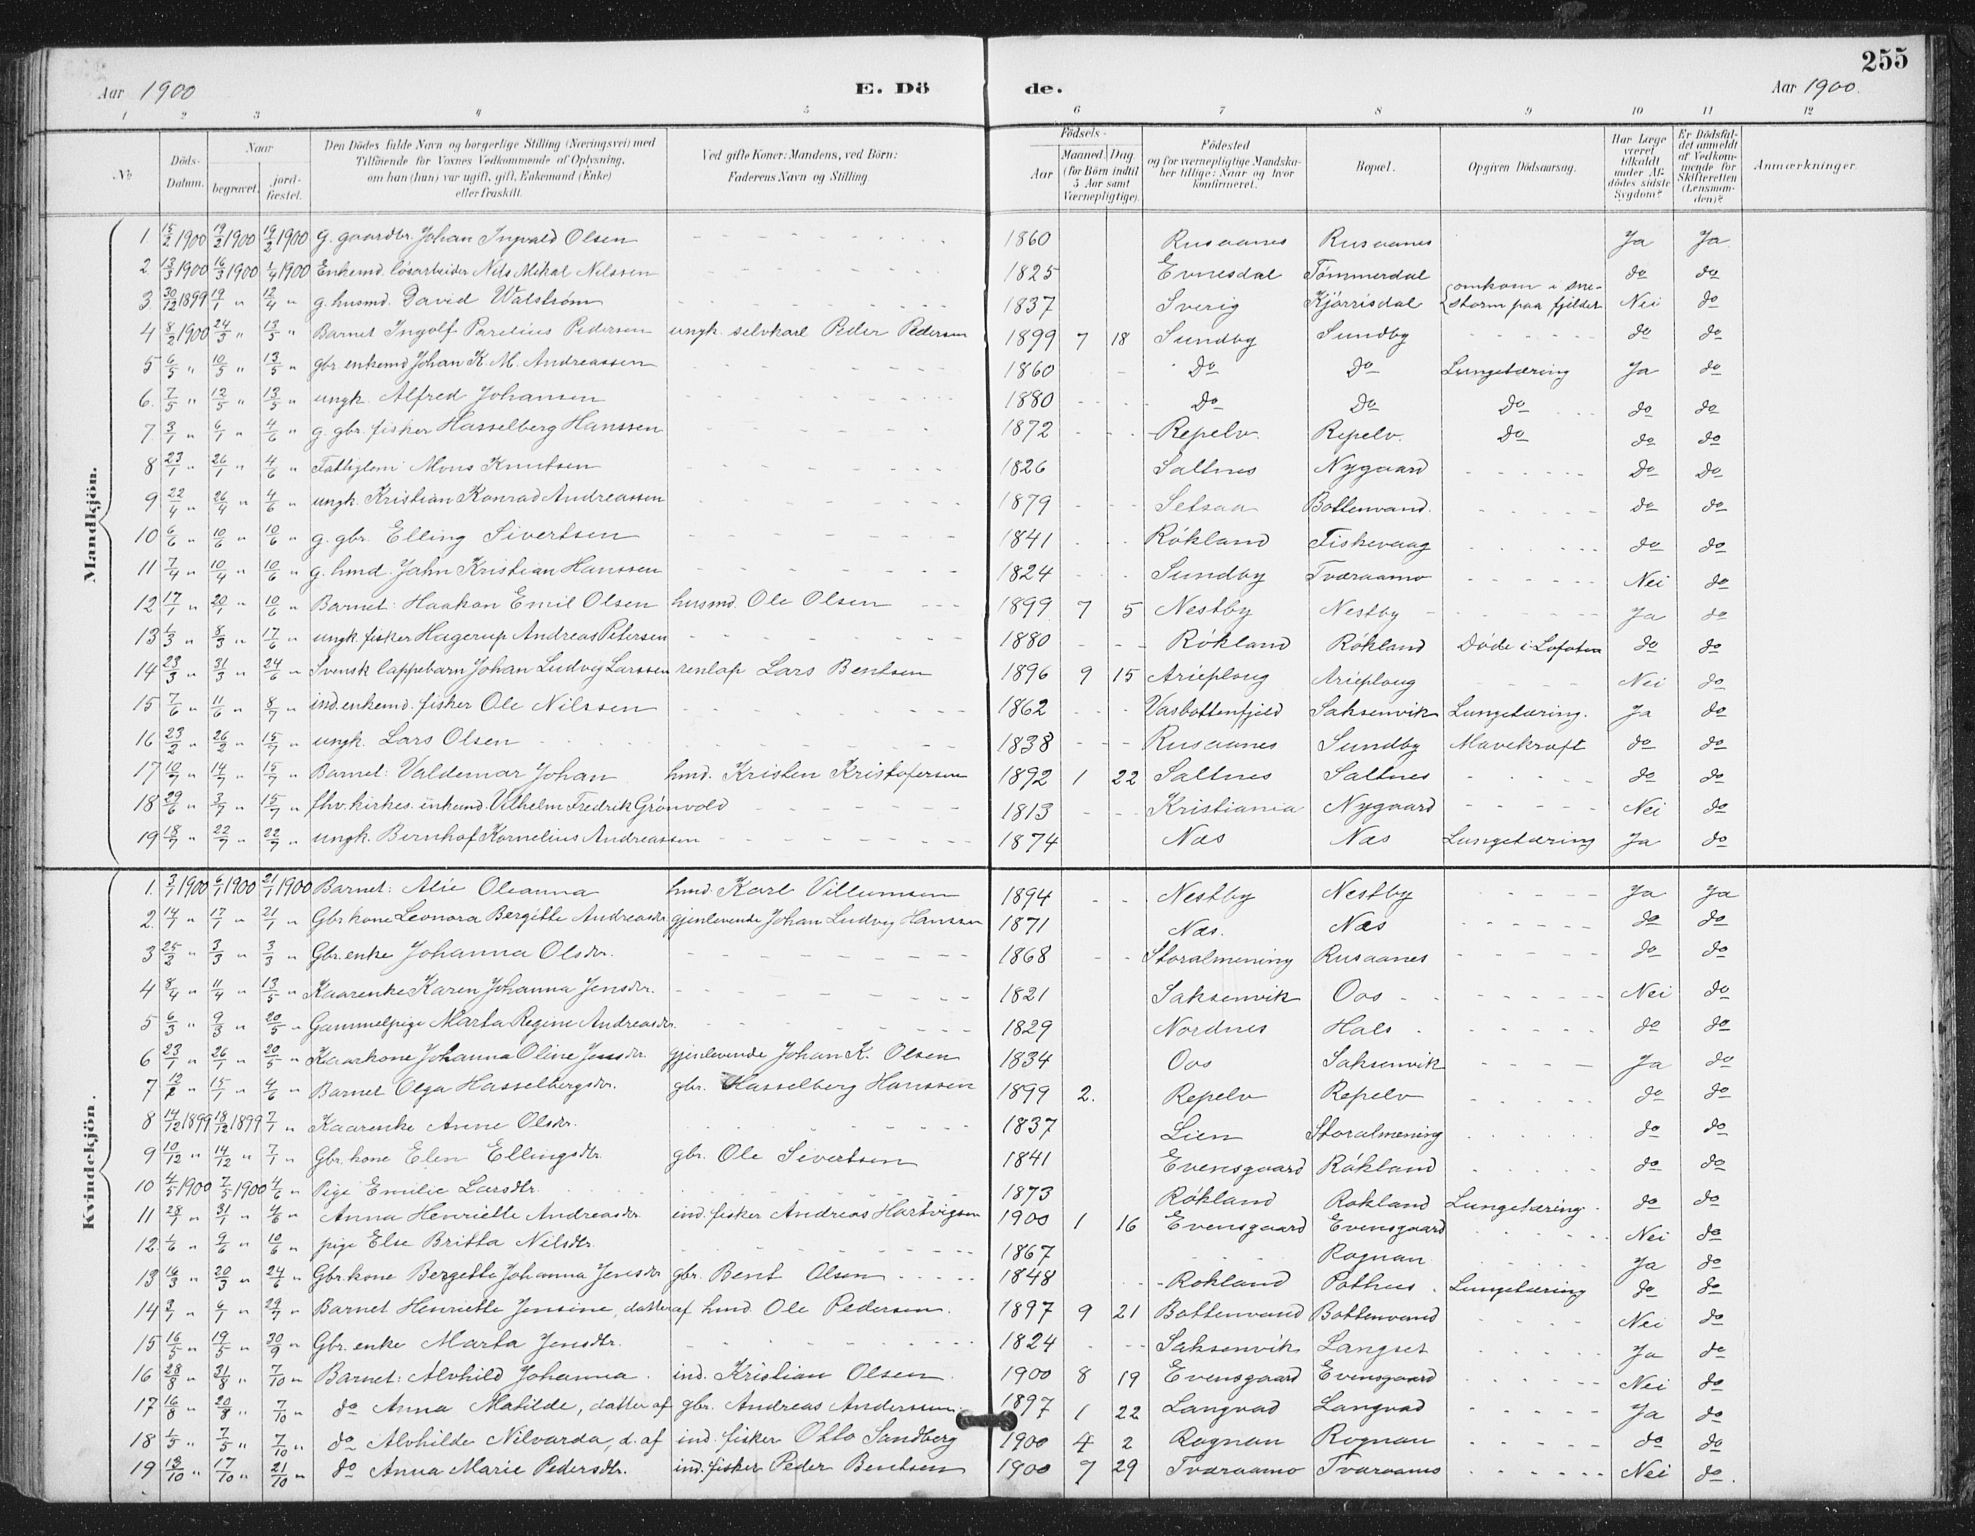 255
Aar 1900 E. Dö de. Aar 1900.
1 2 3 4 5 6 7 8 9 10 11 12
No Döds-Datum. Naar begravet. jordfæstet. Den Dödes fulde Navn og borgerlige Stilling (Næringsvei) med Tilföiende for Voxnes Vedkommende af Oplysning, om han (hun) var ugift, gift, Enkemand (Enke) eller fraskilt. Ved gifte Koner: Mandens, ved Börn: Faderens Navn og Stilling. Födsels- Aar Maaned. Dag (for Börn indtil 5 Aar samt Værnepligtige). Födested og for værnepligtige Mandskaber tillige: Naar og hvor konfirmeret. Bopæl. Opgiven Dödsaarsag. Har Læge været tilkaldt under Afdödes sidste Sygdom? Er Dödsfaldet anmeldt af Vedkommende for Skifteretten (Lensmanden)? Anmærkninger.
Mandkjön.
1. 15/2 1900 19/2 1900 19/2 1900 g. gaardbr. Johan Ingvald Olsen 1860 Rusaanes Rusaanes Ja Ja
2 13/3 1900 16/3 1900 1/4 1900 Enkemd. løsarbeider Nils Mikal Nilssen 1825 Evnesdal Tømmerdal do do
3 30/12 1899 19/1 " 12/4 " g. husmd. David Walstrøm 1837 Sverig Kjørrisdal omkom i snestorm paa fjeldet Nei do
4 8/2 1900 24/3 " 13/5 " Barnet Ingolf Parelius Pedersen ungk. selvkarl Peder Pedersen 1899 7 18 Sundby Sundby do do
5 6/5 " 10/5 " 13/5 " gbr. enkemd Johan K. M. Andreassen 1860 Do Do Lungetæring Ja do
6. 7/5 " 12/5 " 13/5 " ungk. Alfred Johansen 1880 Do Do Do do do
7 3/1 " 6/1 " 4/6 " g. gbr. fisker Hasselberg Hanssen 1872 Repelv. Repelv. Do do do
8 23/1 " 26/1 " 4/6 " Fattiglem Mons Knutsen 1826 Saltnes Nygaard Do Do
9 22/4 " 26/4 " 4/6 " ungk. Kristian Konrad Andreassen 1879 Setsaa Bottenvand. do do
10 6/6 " 10/6 " 10/6 " g. gbr. Elling Sivertsen 1841 Røkland Fiskevaag do do
11 7/4 " 10/4 " 10/6 " g. hmd. Jahn Kristian Hanssen 1824 Sundby Tværaamo Nei do
12 17/1 " 20/1 " 10/6 " Barnet: Haakon Emil Olsen husmd. Ole Olsen 1899 7 5 Nestby Nestby Ja do
13 1/3 " 8/3 " 17/6 " ungk. fisker Hagerup Andreas Petersen 1880 Røkland Røkland Døde i Lofoten do do
14 23/3 " 31/3 " 24/6 " Svensk lappebarn Johan Ludvig Larssen renlap Lars Bentsen 1896 9 15 Arieploug Arieploug Nei do
15 7/6 " 11/6 " 8/7 " ind. enkemd. fisker Ole Nilssen 1862 Vasbottenfjeld Saksenvik Lungetæring. Ja do
16 23/2 " 26/2 " 15/7 " ungk. Lars Olsen 1838 Rusaanes Sundby Mavekræft do do
17 10/7 " 14/7 " 15/7 " Barnet: Valdemar Johan hmd. Kristen Kristofersen 1892 1 22 Saltnes Saltnes do do
18 29/6 " 3/7 " 15/7 " fhv. kirkes. enkemd. Vilhelm Fredrik Grønvold 1813 Kristiania Nygaard Nei do
19 18/7 " 22/7 " 22/7 " ungk. Bernhof Kornelius Andreassen 1874 Næs Næs Lungetæring Ja do
Kvindekjön.
1. 3/1 1900 6/1 1900 21/1 1900 Barnet: Alie Oleanna hmd. Karl Villumsen 1894 Nestby Nestby Ja Ja
2. 14/1 " 17/1 " 21/1 " Gbr kone Leonora Bergitte Andreasdr. gjenlevende Johan Ludvig Hanssen 1871 Næs. Næs do do
3 25/2 " 3/3 " 3/3 " Gbr. enke Johanna Olsdr. 1868 Storalmening Rusaanes do do
4 8/4 " 11/4 " 13/5 " Kaarenke Karen Johanna Jensdr. 1821 Saksenvik Oos Nei do
5 6/3 " 9/3 " 20/5 " Gammelpige Marta Regine Andreasdr. 1829 Nordnes Hals do do
6 23/1 " 26/1 " 20/5 " Kaarkone Johanna Oline Jensdr. gjenlevende Johan K. Olsen 1834 Oos Saksenvik Ja do
7 12/1 " 15/1 " 4/6 " Barnet Olga Hasselbergsdr. gbr. Hasselberg Hanssen 1899 2. Repelv Repelv do do
8 14/12 1899 18/12 1899 7/1 " Kaarenke Anne Olsdr. 1837 Lien Storalmening do do
9 10/12 " 14/12 " 7/1 " Gbr. kone Elen Ellingsdtr. gbr. Ole Sivertsen 1841 Evensgaard Røkland do do
10 4/5 1900 7/5 1900 4/6 " Pige Emilie Larsdtr. 1873 Røkland Rokland Lungetæring. do do
11 28/1 " 31/1 " 4/6 " Anna Henriette Andreasdr ind. fisker Andreas Hartvigsen 1900 1 16 Evensgaard Evensgaard Nei do
12. 1/6 " 9/6 " 10/6 " pige Else Britta Nilsdtr. 1867 Rognan Ja do
13 16/3 " 20/3 " 24/6 " Gbr kone Bergette Johanna Jensdr gbr. Bent Olsen 1848 Rokland Pothus Lungetæring do do
14 3/1 " 6/1 " 29/7 " Barnet Henriette Jensine, datter af hmd. Ole Pedersen. 1897 9 21 Bottenvand Bottenvand Nei do
15 16/5 " 19/5 " 30/9 " Gbr. enke Marta Jensdtr. 1824 Saksenvik Langset Ja do
16 28/8 " 31/8 " 7/10 " Barnet: Alvhild Johanna. ind. Kristian Olsen. 1900 8 19 Evensgaard Evensgaard Nei do
17 16/8 " 20/8 " 7/10 " do Anna Matilde, datter af gbr. Andreas Andersen. 1897 1 22 Langvad Langvad Ja do
18 1/5 " 7/5 " 7/10 " do Alvhilde Nilvarda, d. af ind. fisker Otto Sandberg 1900 4 2 Rognan Rognan do do
19 13/10 " 17/10 " 21/10 " do Anna Marie Pedersdtr. ind. fisker Peder Bentsen 1900 7 29 Tværaamo Tværaamo Nei do.